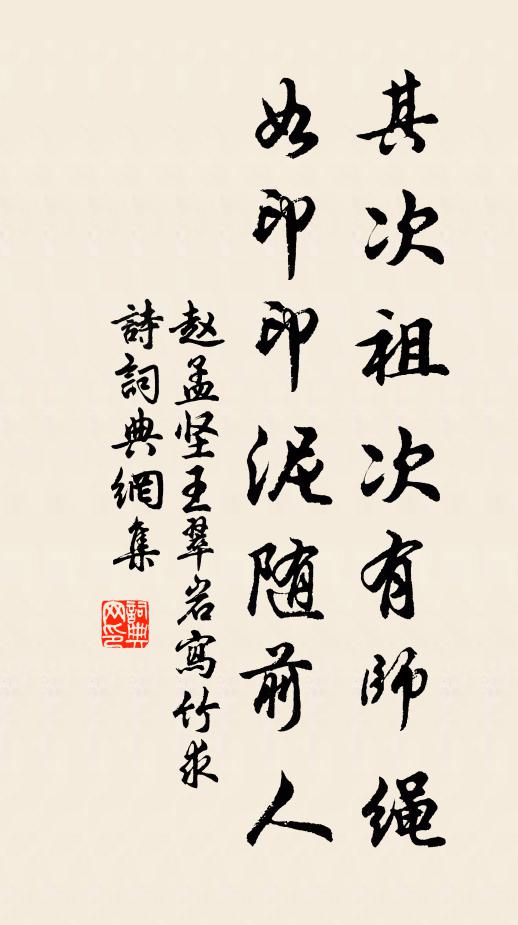 其次祖次有師绳
如印印泥随前人
赵孟坚王翠岩寫竹求
詩詞典網集
詞典网印